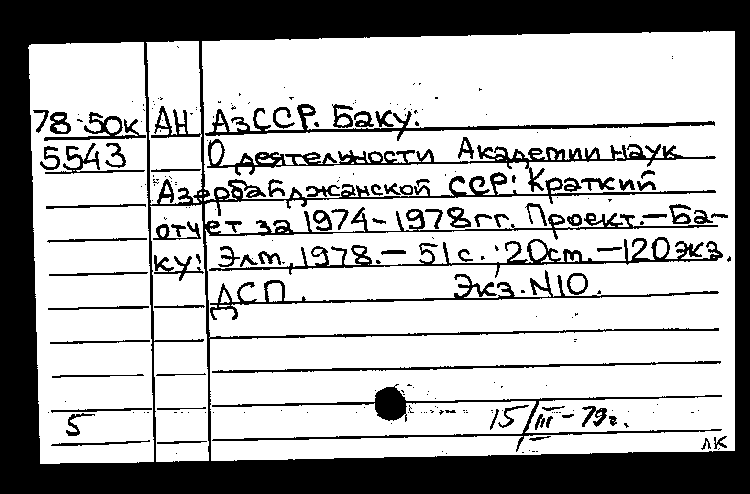 78-50к АН АзССР. Баку.
5543 О деятельности Академии наук
Азербайджанской ССР: Краткий
отчет за 1974-1978гг. Проект.-Ба-
ку: Элм, 1978.- 51с.; 20см.-120экз.
ДСП. Экз.N10.
5 15/III-79г.
ЛК